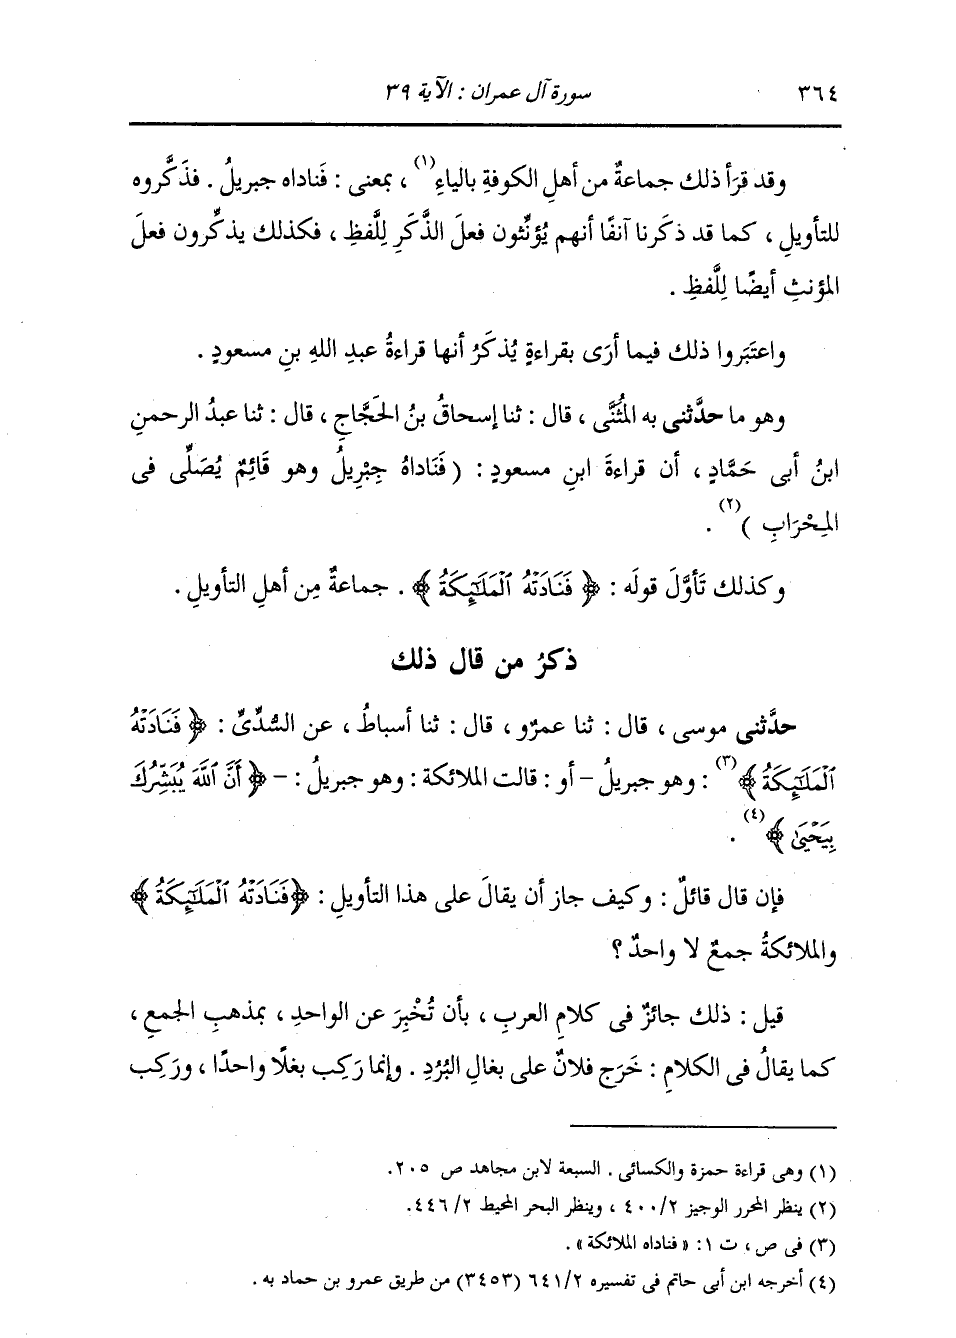 ٣٦٤ سورة آل عمران : الآية ٣٩
وقد قرَأ ذلك جماعةٌ من أهلِ الكوفةِ بالياءِ(١) ، بمعنى : فَناداه جبريلُ . فذَكَّروه
للتأويلِ ، كما قد ذكَرنا آنفًا أنهم يُؤنِّثون فعلَ الذَّكَرِ لِلَّفظِ ، فكذلك يذكِّرون فعلَ
المؤنثِ أيضًا لِلَّفظِ .
واعتَبَروا ذلك فيما أرَى بقراءةٍ يُذكَرُ أنها قراءةُ عبدِ اللهِ بنِ مسعودٍ .
وهو ما حدَّثنى به المُثَنَّى ، قال : ثنا إسحاقُ بنُ الحَجَّاجِ ، قال : ثنا عبدُ الرحمنِ
ابنُ أبى حَمَّادٍ ، أن قراءةَ ابنِ مسعودٍ : ( فَنَاداهُ جِبْرِيلُ وهو قَائِمٌ يُصَلِّى فى
المِحْرَابِ )(٢) .
وكذلك تَأوَّلَ قولَه : ﴿ فَنَادَتْهُ ٱلْمَلَـٰٓئِكَةُ ﴾ . جماعةٌ مِن أهلِ التأويلِ .
ذكرُ من قال ذلك
حدَّثنى موسى ، قال : ثنا عمرٌو ، قال : ثنا أسباطُ ، عن السُّدِّىِّ : ﴿ فَنَادَتْهُ
ٱلْمَلَـٰٓئِكَةُ ﴾(٣) : وهو جبريلُ - أو : قالت الملائكة : وهو جبريلُ : - ﴿ أَنَّ ٱللَّهَ يُبَشِّرُكَ
بِيَحْيَىٰ ﴾(٤) .
فإن قال قائلٌ : وكيف جاز أن يقالَ على هذا التأويلِ : ﴿فَنَادَتْهُ ٱلْمَلَـٰٓئِكَةُ ﴾
والملائكةُ جمعٌ لا واحدٌ ؟
قيل : ذلك جائزٌ فى كلامِ العربِ ، بأن تُخْبِرَ عن الواحدِ ، بمذهبِ الجمعِ ،
كما يقالُ فى الكلامِ : خَرَج فلانٌ على بغالِ البُرُدِ . وإنما رَكِب بغلًا واحدًا ، ورَكِب
(١) وهى قراءة حمزة والكسائى . السبعة لابن مجاهد ص ٢٠٥.
(٢) ينظر المحرر الوجيز ٤٠٠/٢ ، وينظر البحر المحيط ٤٤٦/٢.
(٣) فى ص ، ت ١: « فناداه الملائكة» .
(٤) أخرجه ابن أبى حاتم فى تفسيره ٦٤١/٢ (٣٤٥٣) من طريق عمرو بن حماد به .